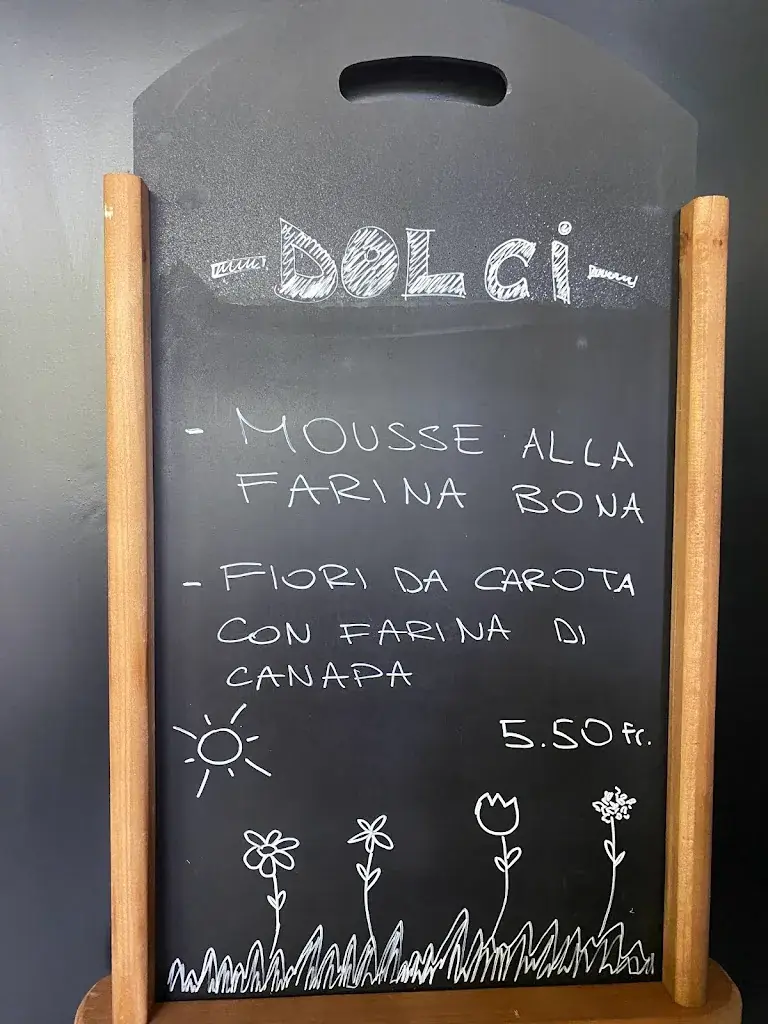 DOLCi
- MOUSSE ALLA
FARINA BONA
- FIORI DA CAROTA
CON FARINA DI
CANAPA
5.50 Fr.